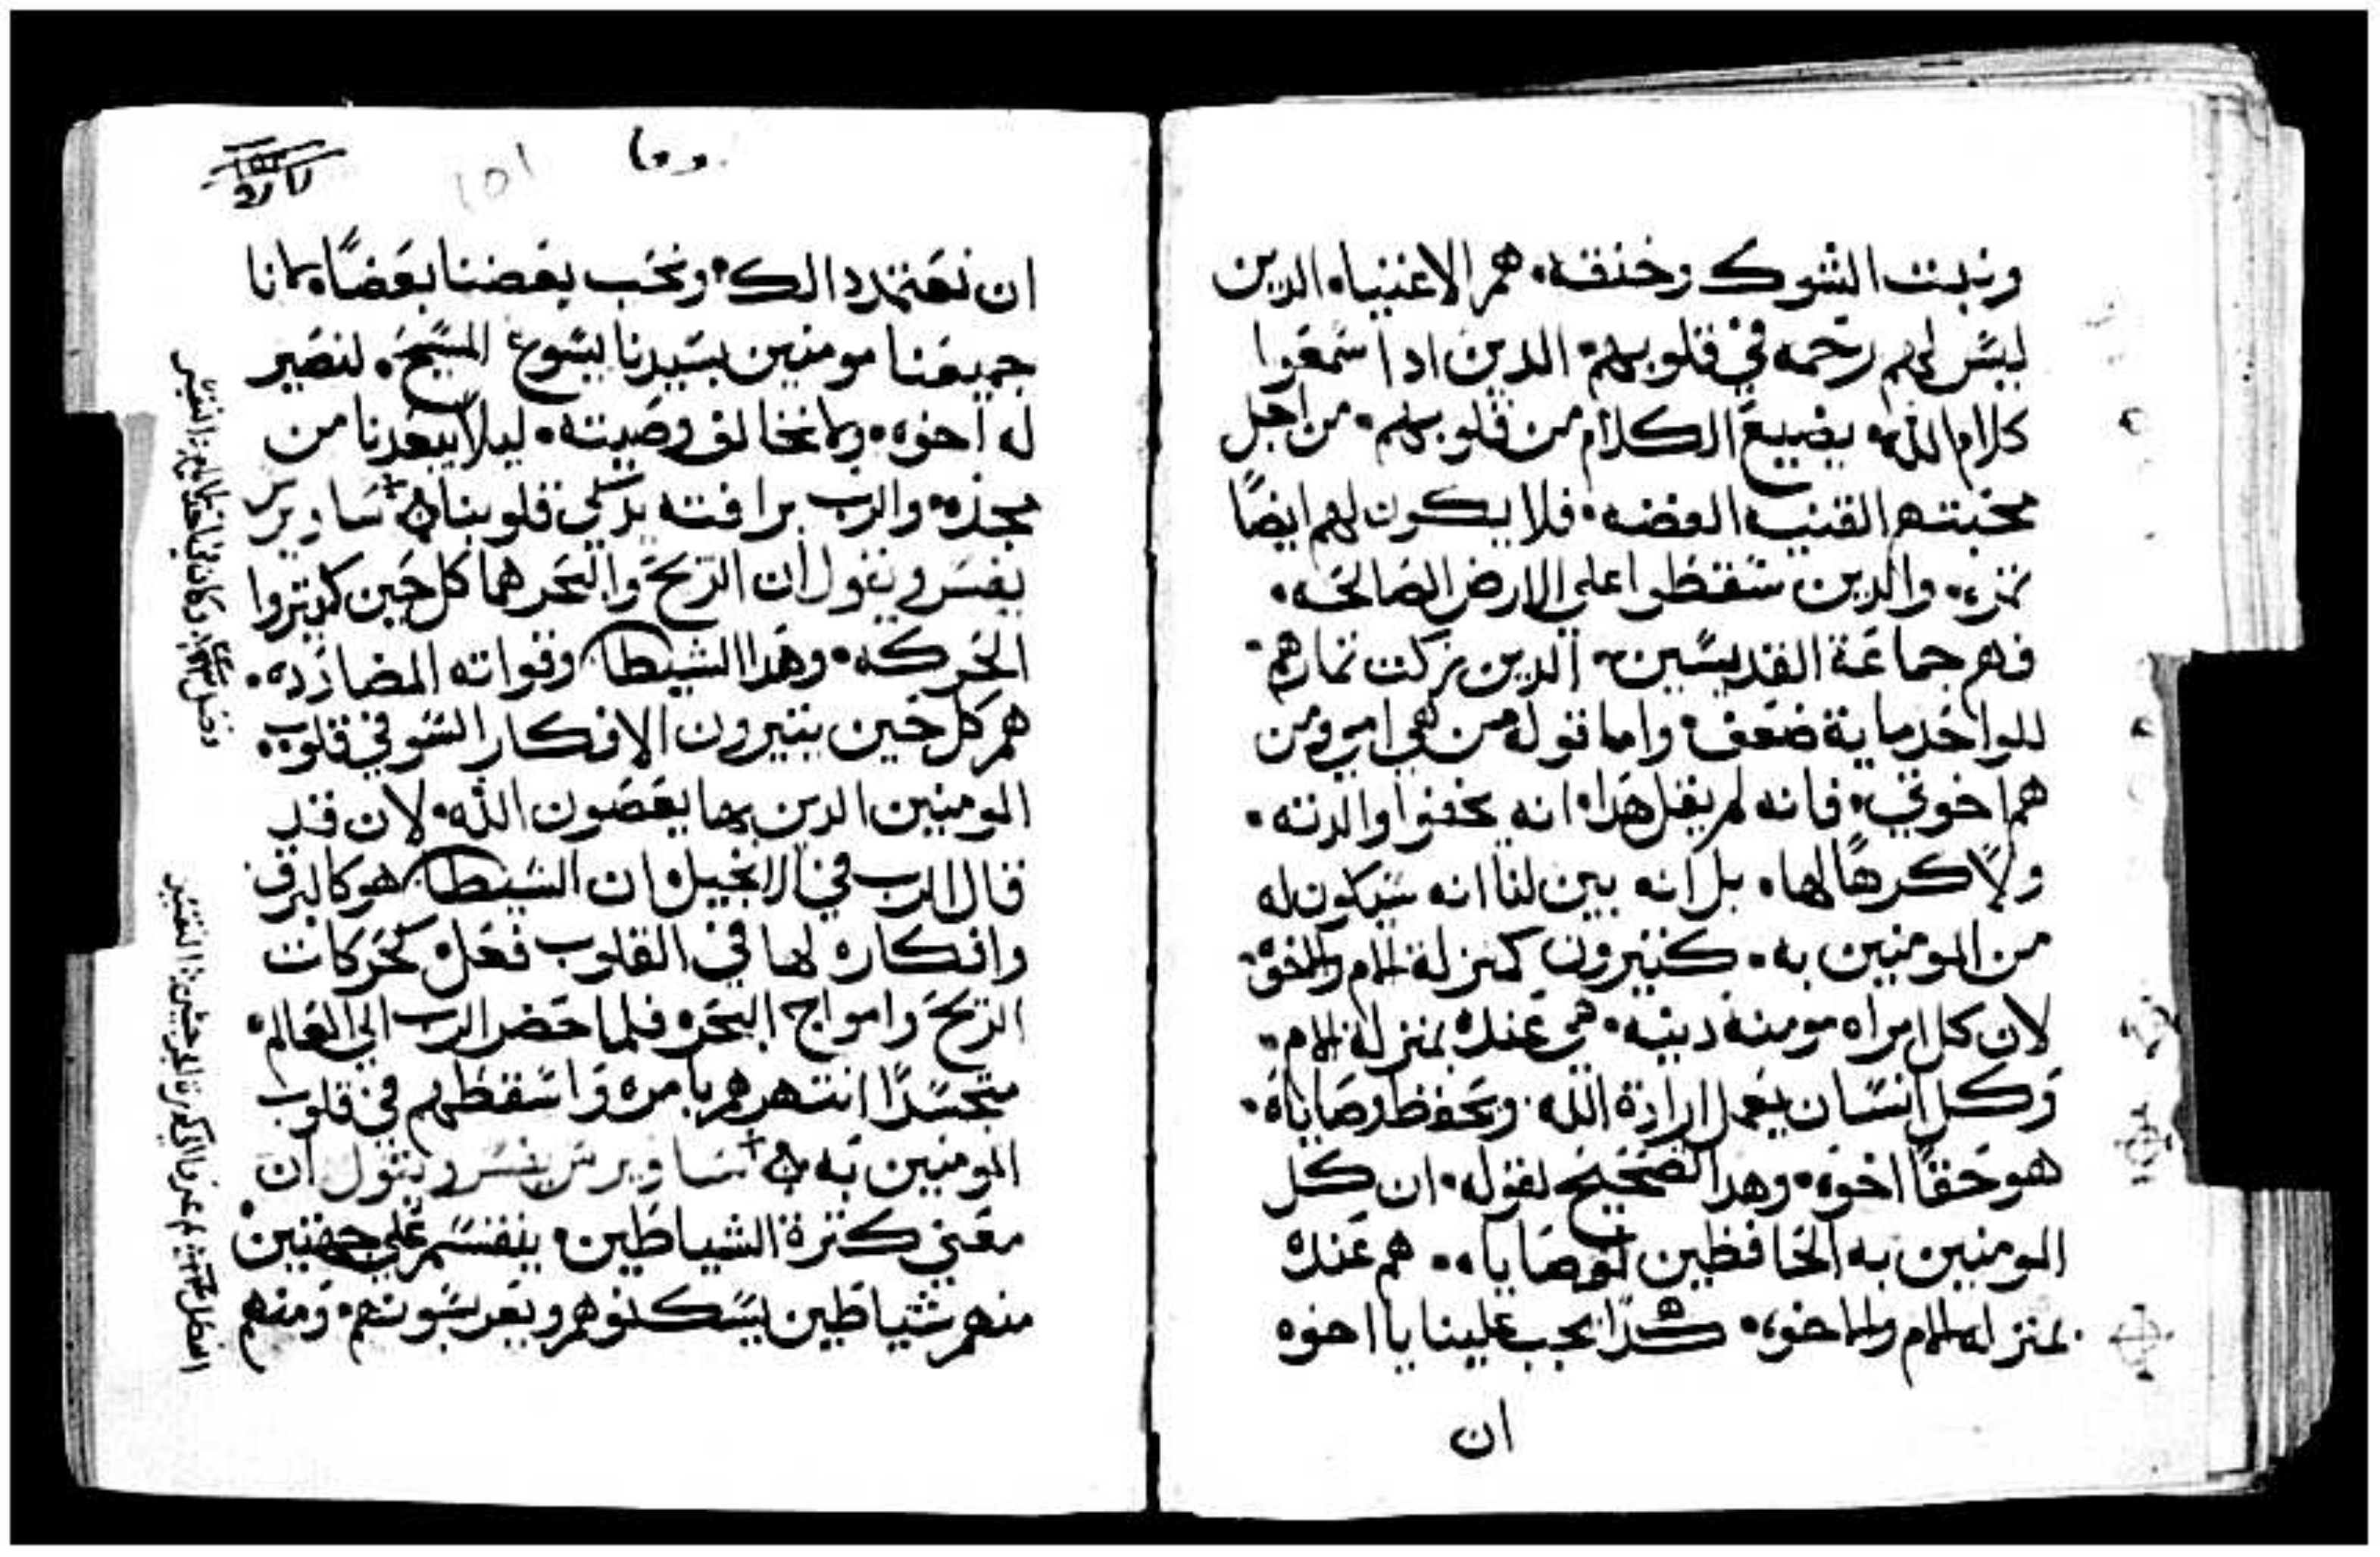 ونبت الشوك وخنقه. هم الاغنياء الدين
ليس لهم رحمه في قلوبهم. الدين ادا سمعوا
كلام الله يضيع الكلام من قلوبهم. من اجل
محبتهم القنيه الفضه. فلا يكون لهم ايضًا
ثمره. والدين سقطوا علي الارض الصالحه.
فهم جماعة القديسين الدين تزكت ثمارهم.
للواحد ماية ضعف. واما قوله من هي امي ومن
هم اخوتي. فانه لم يقل هدا انه يحفوا والدته.
ولا كرهًا لها. بل انه بين لنا انه سيكون له
من المومنين به. كثيرون كمنزلة الام والاخوه.
لان كل امراه مومنه دينه. هي عنده بمنزلة الام.
وكل انسان يعمل ارادة الله. ويحفظ وصاياه.
هو حقًا اخوه. وهدا الصحيح لقوله. ان كل
المومنين به الحافظين لوصاياه. هم عنده
بمنزلة الام والاخوه. هكدا يجب علينا يا اخوه
ان
ان نعتمد دالك. ونحب بعضنا بعضًا. باننا
جميعنا مومنين بسيدنا يسوع المسيح. لنصير
له اخوه. ولا نخالف وصيته. ليلا يبعدنا من
مجده. والرب برافته يزكي قلوبنا ساويرس
يفسر ويقول ان الريح والبحر هما كل حين كثيروا
الحركه. وهدا الشيطان وقواته المضادده.
هم كل حين يثيرون الافكار السو في قلوب
المومنين الدين بها يعصون الله. لان قد
قال الرب في الانجيل ان الشيطان هو كالبرق
وافكاره لها في القلوب فعل كحركات
الريح وامواج البحر. فلما حضر الرب الي العالم.
متجسدًا انتهرهم بامره واسقطهم في قلوب
المومنين به ساويرس يفسر ويقول ان
معني كثرة الشياطين. ينقسم علي جهتين
منهم شياطين يسكنوهم ويعربسونهم. ومنهم